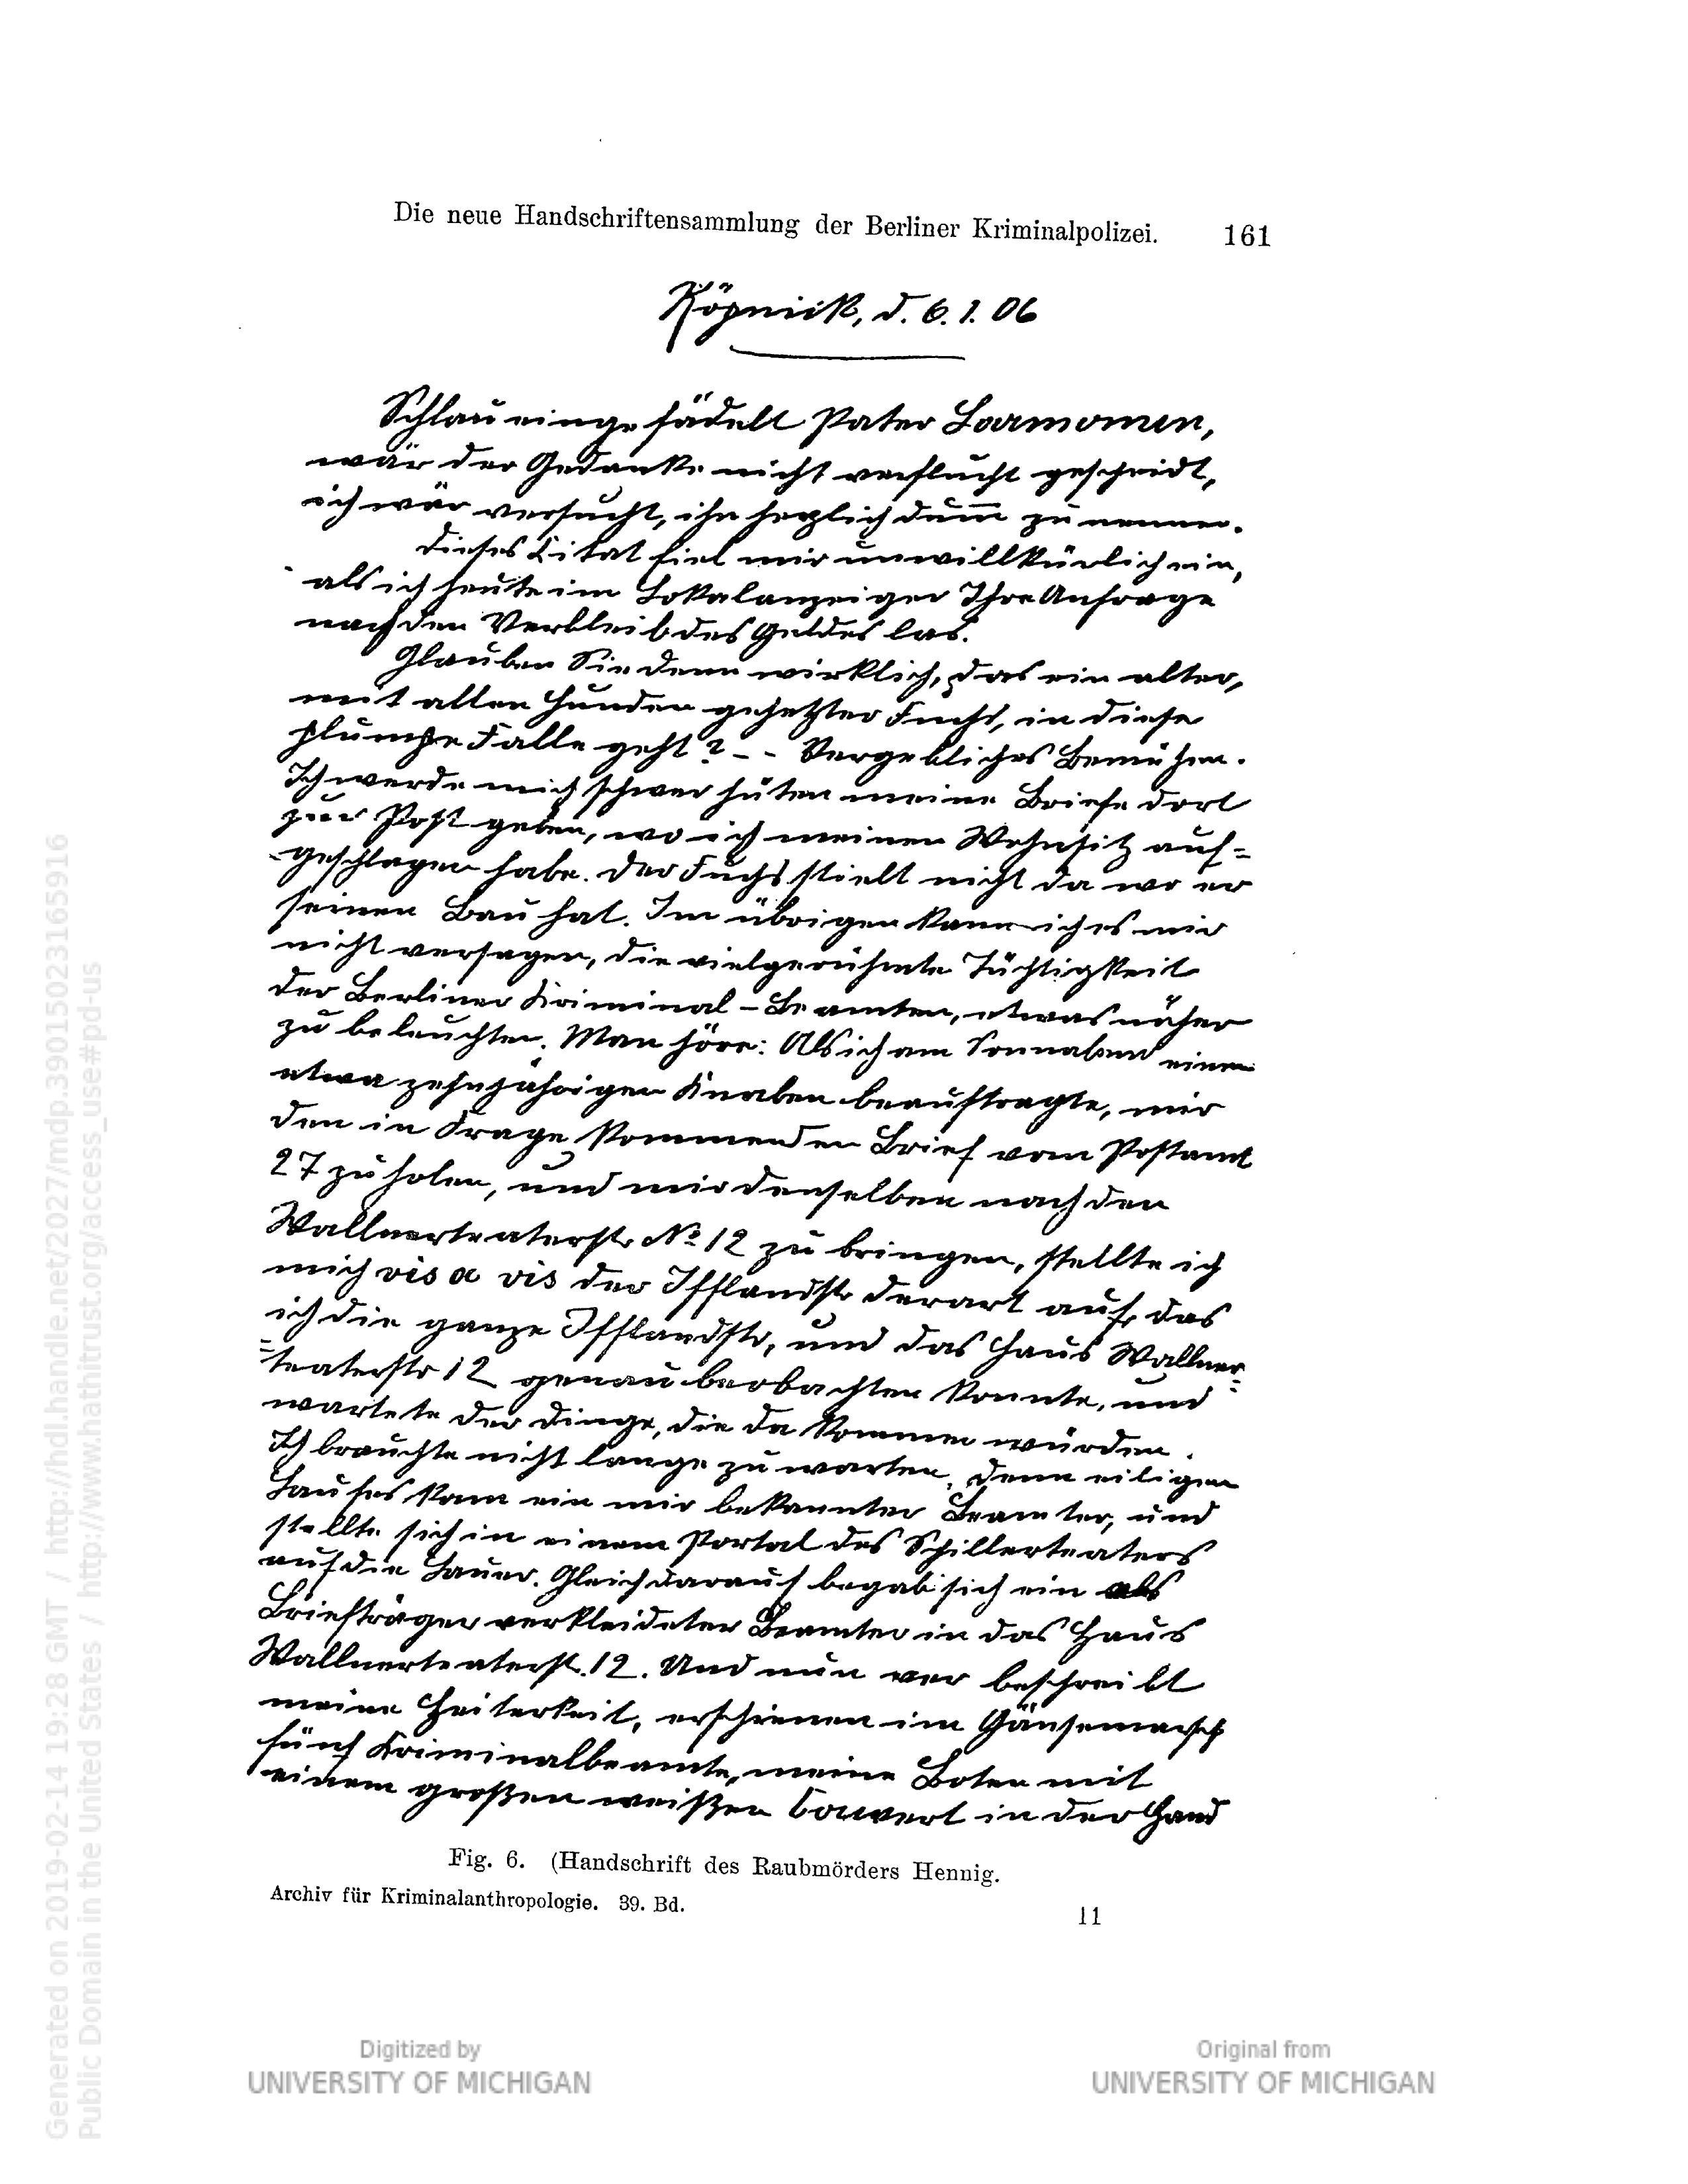 Die neue Handschriftensammlung der Berliner Kriminalpolizei. 161
Köpnick, d. 6. 1. 06
Schlau eingefädelt Pater Lamormen,
wär der Gedanke nicht verflucht gescheidt,
ich wär versucht, ihn herzlich dum̄ zu nennen.
Dieses Citat fiel mir unwillkürlich ein,
als ich heute im Lokalanzeiger Ihre Anfrage
nach den Verbleib des Geldes las.
Glauben Sie denn wirklich, das ein alter,
mit allen Hunden gehetzter Fuchs, in diese
plumpe Falle geht? – - Vergebliches Bemühen.
Ich werde mich schwer hüten meine Briefe dort
zur Post geben, wo ich meinen Wohnsitz auf=
geschlagen habe. Der Fuchs stielt nicht da wo er
seinen Bau hat. Im übrigen kann ich es mir
nicht versagen, die vielgerühmte Tüchtigkeit
der Berliner Kriminal – Beamten, etwas näher
zu beleuchten. Man höre: Als ich am Sonnabend einen
etwa zehnjährigen Knaben beauftragte, mir
den in Frage kommenden Brief vom Postamt
27 zu holen, und mir denselben nach den
Wallnerteaterstr No 12 zu bringen, stellte ich
mich vis a vis der Ifflandstr derart auf, das
ich die ganze Ifflandstr, und das Haus Wallner=
=teaterstr 12 genau beobachten konnte, und
wartete der Dinge, die da kommen würden.
Ich brauchte nicht lange zu warten, denn eiligen
Laufes kam ein mir bekannter Beamter, und
stellte sich in einem Portal des Schillerteaters
auf die Lauer. Gleich darauf begab sich ein als
Briefträger verkleideter Beamter in das Haus
Wallnerteaterst. 12. Und nun wer beschreibt
meine Heiterkeit, erschienen im Gänsemarsch
fünf Kriminalbeamte, meine Boten mit
einem großen weißen Couvert in der Hand
Fig. 6. (Handschrift des Raubmörders Hennig.
Archiv für Kriminalanthropologie. 39. Bd. 11
Generated on 2019-02-14 19:28 GMT / http://hdl.handle.net/2027/mdp.39015023165916
Public Domain in the United States / http://www.hathitrust.org/access_use#pd-us
Digitized by
UNIVERSITY OF MICHIGAN
Original from
UNIVERSITY OF MICHIGAN